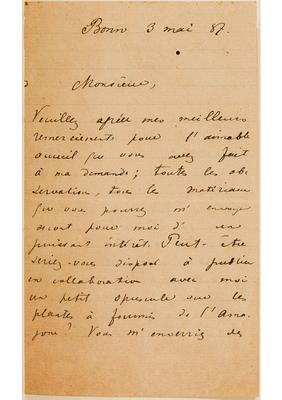 Bonn 3 mai 87.
Monsieur,
Veuillez agréer mes meilleurs
remerciements pour l'aimable
accueil que vous avez fait
à ma demande; toutes les ob
servation, tous les matériaux
que vous pourrez m'envoyer
seront pour moi d'un
puissant intéret. Peut-être
seriez-vous disposé à publier
en collaboration avec moi
un petit opuscule sur les
plantes à fourmis de l'Ama
zone? Vous m'enverriez des